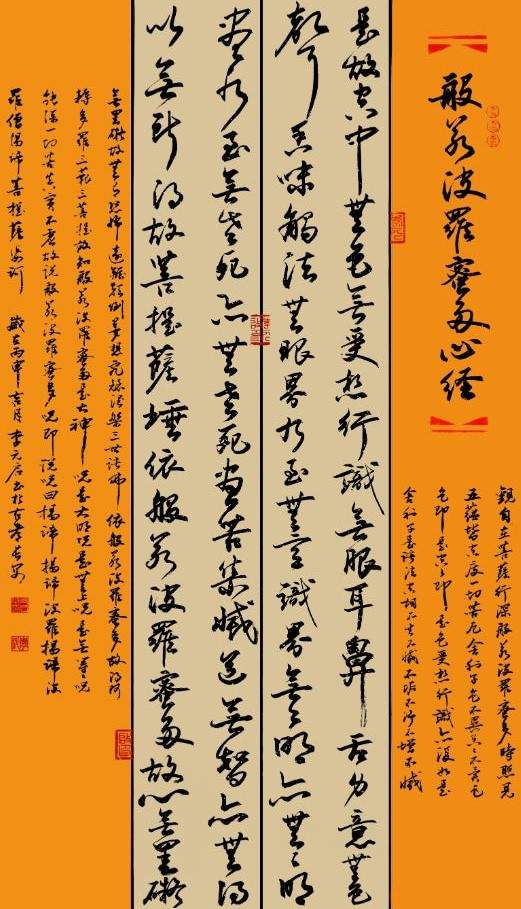 般若波羅蜜多心経
觀自在菩薩行深般若波羅蜜多時照見
五蘊皆空度一切苦厄舍利子色不異空空不異色
色即是空空即是色受想行識亦復如是
舍利子是諸法空相不生不滅不垢不淨不增不減
是故空中無色無受想行識無眼耳鼻舌身意無色
聲香味觸法無眼界乃至無意識界無無明亦無無明
盡乃至無老死亦無老死盡無苦集滅道無智亦無得
以無所得故菩提薩埵依般若波羅蜜多故心無罣礙
無罣礙故無有恐怖遠離顛倒夢想究竟涅槃三世諸佛依般若波羅蜜多故得阿
耨多羅三藐三菩提故知般若波羅蜜多是大神咒是大明咒是無上咒是無等等咒
能除一切苦真實不虛故說般若波羅蜜多咒即說咒曰揭諦揭諦波羅揭諦波
羅僧揭諦菩提薩婆訶 歲在丙申吉月李元